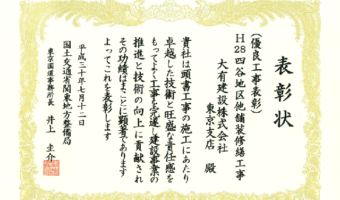 表彰状
(優良工事表彰)
H28四谷地区他舗装修繕工事
大有建設株式会社
東京支店 殿
貴社は頭書工事の施工にあたり
卓越した技術と旺盛な責任感を
もってよく工事を完遂し建設事業の
推進と技術の向上に貢献され
その功績はまことに顕著であります
よってこれを表彰します
平成三十年七月十二日
国土交通省関東地方整備局
東京国道事務所長 井上 圭介